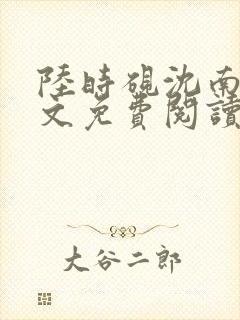 陸時硯沈南
文免費閱讀
大谷二郎